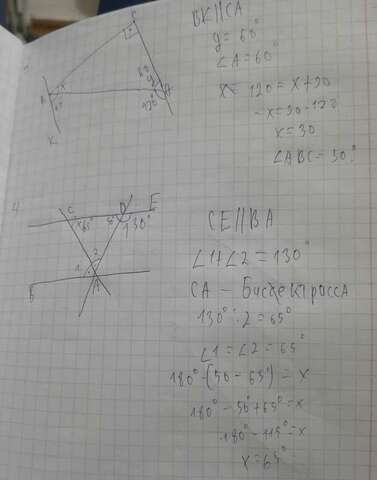 BK||CA
y = 60°
∠A = 60°
x = 120 = x + 90
-x = 90 - 120
x = 30
∠ABC = 30°
C
x
A
120°
K
4
C
D
E
x 65°
130°
2
1
B
A
CE||BA
∠1+∠2 = 130°
CA - Биссектросса
130° : 2 = 65°
∠1 = ∠2 = 65°
180° - (50 - 65°) = x
180° - 50 + 65° = x
180° - 115° = x
x = 65°